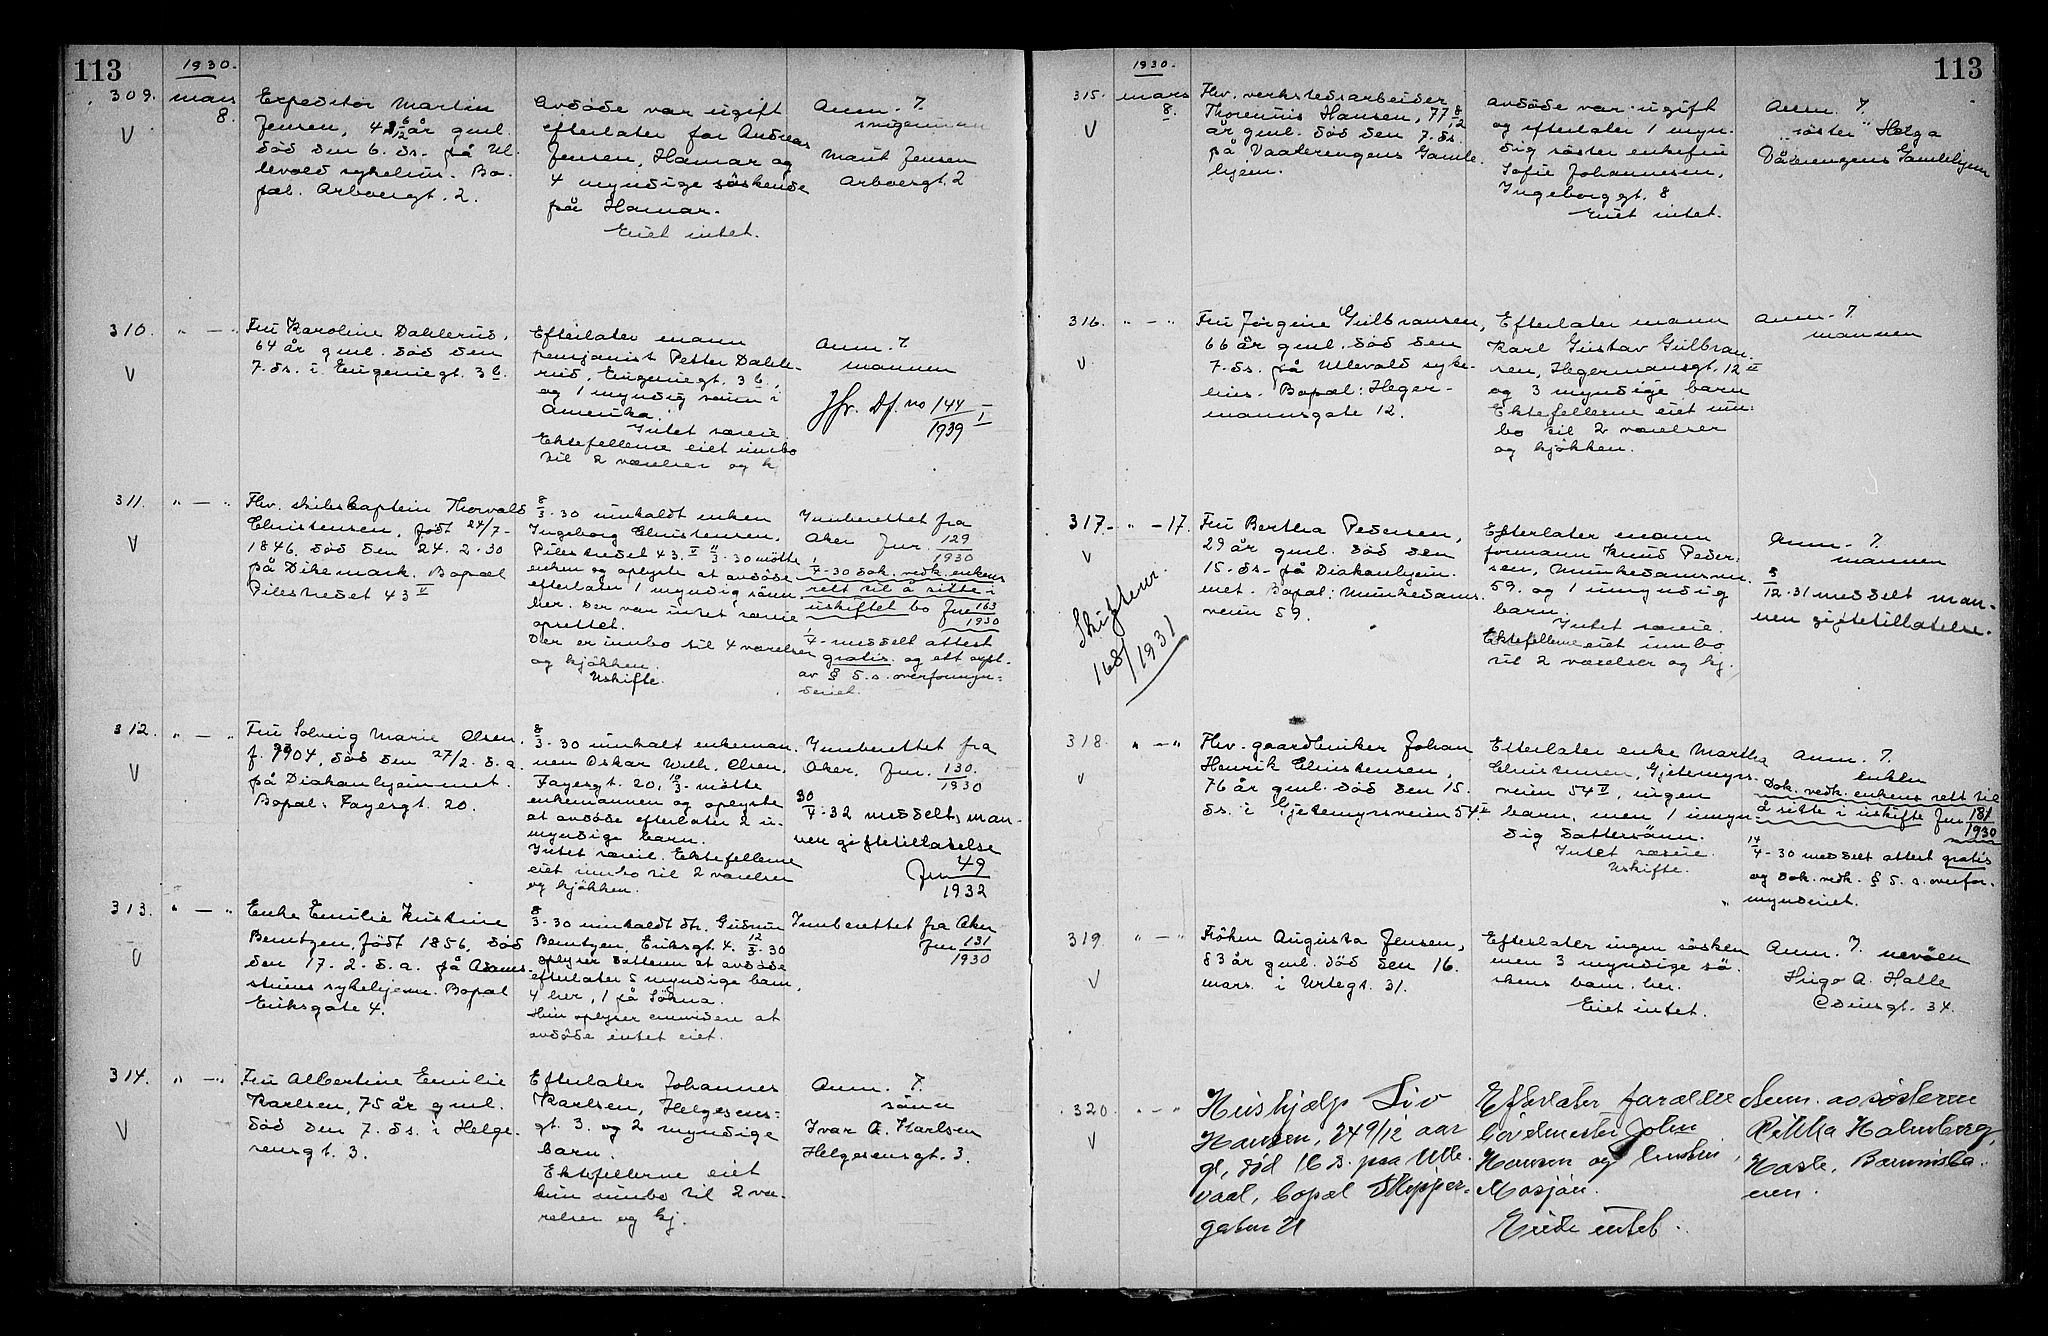 113
1930.
309.
mars
8.
Expeditör Martin
Jensen, 4 6/12 år gml.
död den 6. ds. på Ul
levold sykehus. Bo-
pæl. Arboesgt. 2.
Avdöde var ugift
efterlater far Andreas
Jensen, Hamar og
4 myndige söskende
på Hamar.
Eiet intet.
Anm. 7.
svigerinnen
Marit Jensen
Arboesgt. 2
310.
" — "
Fru Karoline Dahlerud,
64 år gml. död den
7. ds. i Eugeniegt. 3 b.
Efterlater mann
pensjonist Petter Dahle-
rud, Eugeniegt. 3 b,
og 1 myndig sönn i
Amerika.
Intet særeie.
Ektefellerne eiet innbo
til 2 værelser og kj
Anm. 7.
mannen
Jfr. Df. no 144 I
1939
311.
" — "
Fhv. skibskaptein Thorvald
Christensen, född 24/7-
1846, död den 24. 2. 30
på Dikemark. Bopæl
Pilestredet 43 II
8/3-30 innkaldt enken
Ingeborg Christensen,
Pilestredet 43. II 11/3-30 mötte
enken og oplyste at avdöde
efterlater 1 myndig sönn
her. Der var intet særeie
oprettet.
Der er innbo til 4 værelser
og kjökken.
Uskifte.
Innberettet fra
Aker Jnr. 129
1930
1/4-30 dok. vedk. enkens
rett til å sitte i
uskiftet bo Jnr 163
1930
1/4-meddelt attest
gratis og ett
av § 5. s. overformyn-
deriet.
312.
" — "
Fru Solveig Marie Olsen,
f. 1904, död den 27/2. d.a.
på Diakonhjemmet.
Bopæl: Fayesgt. 20.
8/3-30 innkalt enkeman-
nen Oskar Wilh. Olsen,
Fayesgt. 20, 10/3-mötte
enkemannen og oplyste
at avdöde efterlater 2 u-
myndige barn.
Intet særeie. Ektefellerne
eiet innbo til 2 værelser
og kjökken.
Innberettet fra
Aker, Jnr. 130.
1930
30/4-32 meddelt man-
nen giftetillatelse
Jnr 49
1932
313.
" — "
Enke Emilie Kristine
Berntzen, födt 1856, död
den 17. 2. d.a. på Adams-
stuens sykehjem. Bopæl
Eriksgate 4.
8/3-30 innkaldt dtr. Gudrun
Berntzen, Eriksgt. 4. 12/3-30
oplyser datteren at avdöde
efterlater 5 myndige barn,
4 her, 1 på Sökna.
Hun oplyser envidere at
avdöde intet eiet.
Innberettet fra Aker
Jnr 131
1930
314.
" — "
Fru Albertine Emilie
Karlsen, 75 år gml.
död den 7. ds. i Helge-
sensgt. 3.
Efterlater Johannes
Karlsen, Helgesens-
gt. 3. og 2 myndige
barn.
Ektefellerne eiet
kun innbo til 2 væ-
relser og kj.
Anm. 7.
sönn
Ivar A. Karlsen
Helgesensgt. 3.
113
1930.
315.
mars
8.
Fhv. verkstedsarbeider
Thorenius Hansen, 77 8/12
år gml. död den 7. ds.
på Vaalerengens Gamle-
hjem.
Avdöde var ugift
og efterlater 1 myn-
dig söster enkefru
Sofie Johannesen,
Ingeborggt. 8
Eiet intet.
Anm. 7.
"söster" Helga
Vålerengens Gamlehjem
316.
" — "
Fru Jörgine Gulbransen,
66 år gml. död den
7. ds. på Ullevold syke-
hus. Bopæl: Heger-
mannsgate 12.
Efterlater mann
Karl Gustav Gulbran-
sen, Hegermansgt. 12 II
og 3 myndige barn
Ektefellerne eiet inn-
bo til 2 værelser
og kjökken.
Anm. 7.
mannen
317.
" — 17.
Skiftenr.
168/1931
Fru Bertha Pedersen,
29 år gml. död den
15. ds. på Diakonhjem-
met. Bopæl: Munkedams-
veien 59.
Efterlater mann
formann Knud Peder-
sen, Munkedamsvn.
59. og 1 umyndig
barn.
Intet særeie.
Ektefellerne eiet innbo
til 2 værelser og kj.
Anm. 7.
mannen
8/12-31 meddelt man-
nen giftetillatelse.
318.
" — "
Fhv. gaardbruker Johan
Henrik Christensen,
76 år gml. död den 15.
ds. i Gjetemyrsveien 54 II
Efterlater enke Martha
Christensen, Gjetemyrs-
veien 54 II, ingen
barn, men 1 umyn-
dig dattersönn.
Intet særeie.
Uskifte.
Anm. 7.
enken
Dok. vedk. enkens rett til
å sitte i uskifte Jnr 181
1930
14/4-30 meddelt attest gratis
og dok. vedk. § 5. s. overfor-
mynderiet.
319.
" — "
Fröken Augusta Jensen,
83 år gml. död den 16.
mars. i Urtegt. 31.
Efterlater ingen sösken
men 3 myndige sö-
skens barn. her.
Eiet intet.
Anm. 7. nevöen
Hugo A. Halle
Odinsgt. 34.
320.
" — "
Hushjælp Liv
Hansen, 24 9/12 aar
gl, död 16 ds. paa Ulle-
vaal, bopæl Skipper-
gaten 21
Efterlater forældre
John
Hansen og hustru,
Mosjöen.
Eiede intet.
Anm. av sösteren
Holmberg,
Hasle,